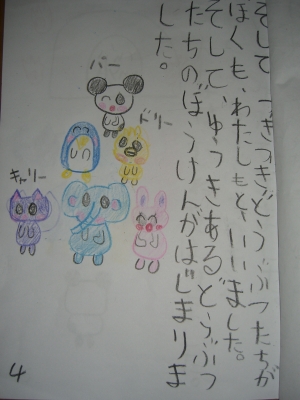 そして つぎつぎどうぶつたちが
ぼくも、わたしもと、いいました。
そして、ゆうきあるどうぶつ
たちのぼうけんがはじまりま
した。
バー
ドリー
キャリー
4